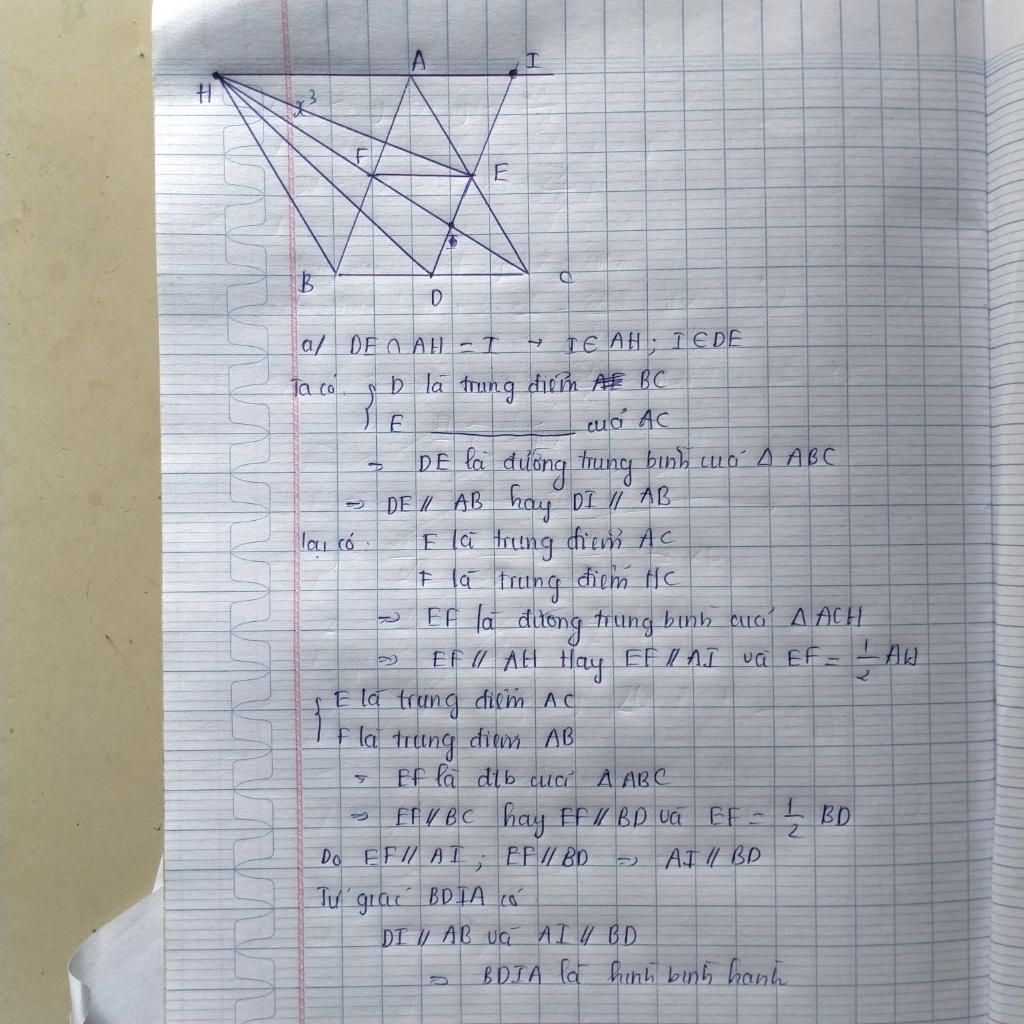 A I
H
x³
F E
B D C
a/ DE ∩ AH = I → I ∈ AH ; I ∈ DE
Ta có { D là trung điểm BC
E ________ của AC
⇒ DE là đường trung bình của Δ ABC
⇒ DE // AB hay DI // AB
lại có : E là trung điểm AC
F là trung điểm HC
⇒ EF là đường trung bình của Δ ACH
⇒ EF // AH Hay EF // AI và EF = 1/2 AH
{ E là trung điểm AC
F là trung điểm AB
⇒ EF là đtb của Δ ABC
⇒ EF // BC hay EF // BD và EF = 1/2 BD
Do EF // AI ; EF // BD ⇒ AI // BD
Tứ giác BDIA có
DI // AB và AI // BD
⇒ BDIA là hình bình hành